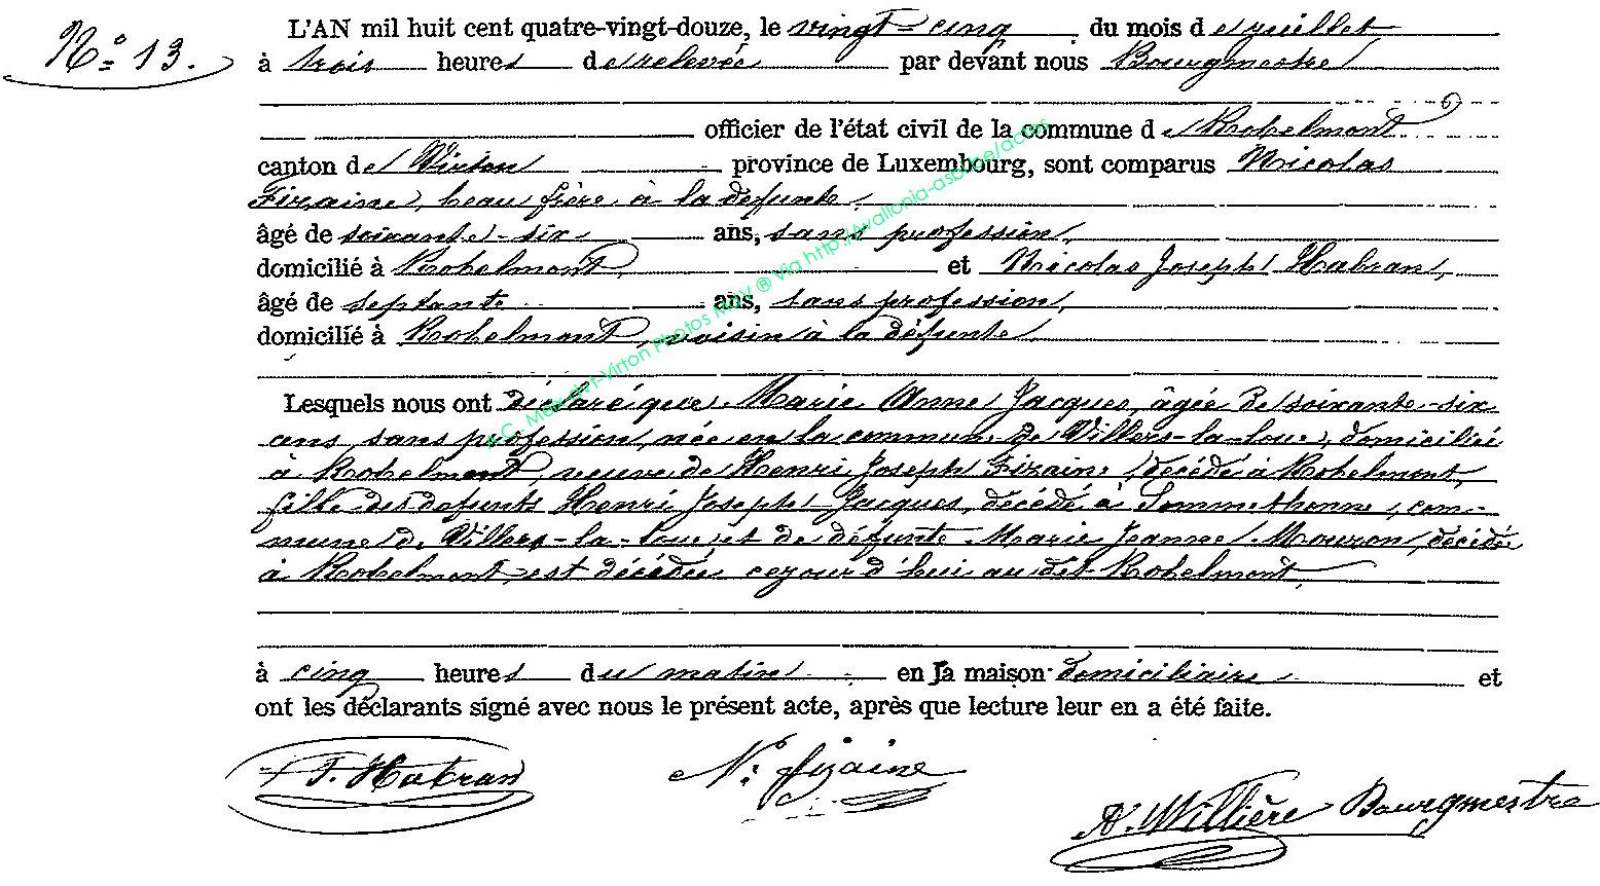 N° 13.
L'AN mil huit cent quatre-vingt-douze, le vingt-cinq du mois de juillet
à trois heures de relevée par devant nous Bourgmestre
officier de l'état civil de la commune de Robelmont
canton de Virton province de Luxembourg, sont comparus Nicolas
Fizaine, beau frère à la defunte,
âgé de soixante-six ans, sans profession,
domicilié à Robelmont, et Nicolas Joseph Habran,
âgé de septante ans, sans profession,
domicilié à Robelmont, voisin à la défunte,
Lesquels nous ont déclaré que Marie Anne Jacques, âgée de soixante-six
ans, sans profession, née en la commune de Villers-la-loue, domiciliée
à Robelmont, veuve de Henri Joseph Fizaine, décédé à Robelmont,
fille des defunts Henri Joseph Jacques, décédé à Sommethonne, com-
mune de Villers-la-loue et de défunte Marie Jeanne Mouzon, décédée
à Robelmont, est décédée ce jour d'hui au dit Robelmont,
à cinq heures du matin en la maison domiciliaire et
ont les déclarants signé avec nous le présent acte, après que lecture leur en a été faite.
J. Habran N. fizaine
N. Willière Bourgmestre
Virton Photos MSV ® Via http://wallonia-asbl.be/actes